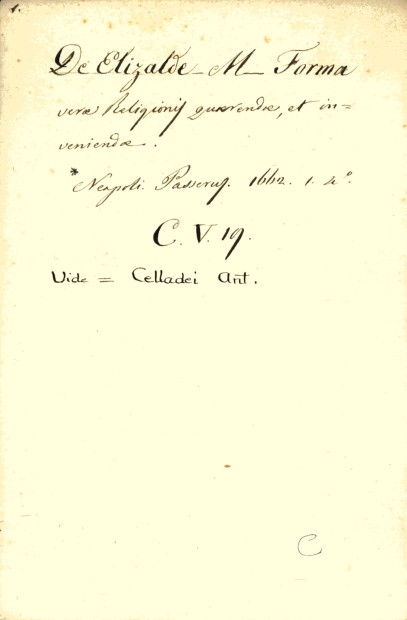 1.
De Elizalde M Forma
veræ Religionis quærendæ, et in=
veniendæ.
* Neapoli. Passerus. 1662. 1. 4º.
C. V. 19.
Vide = Celladei Ant.
C